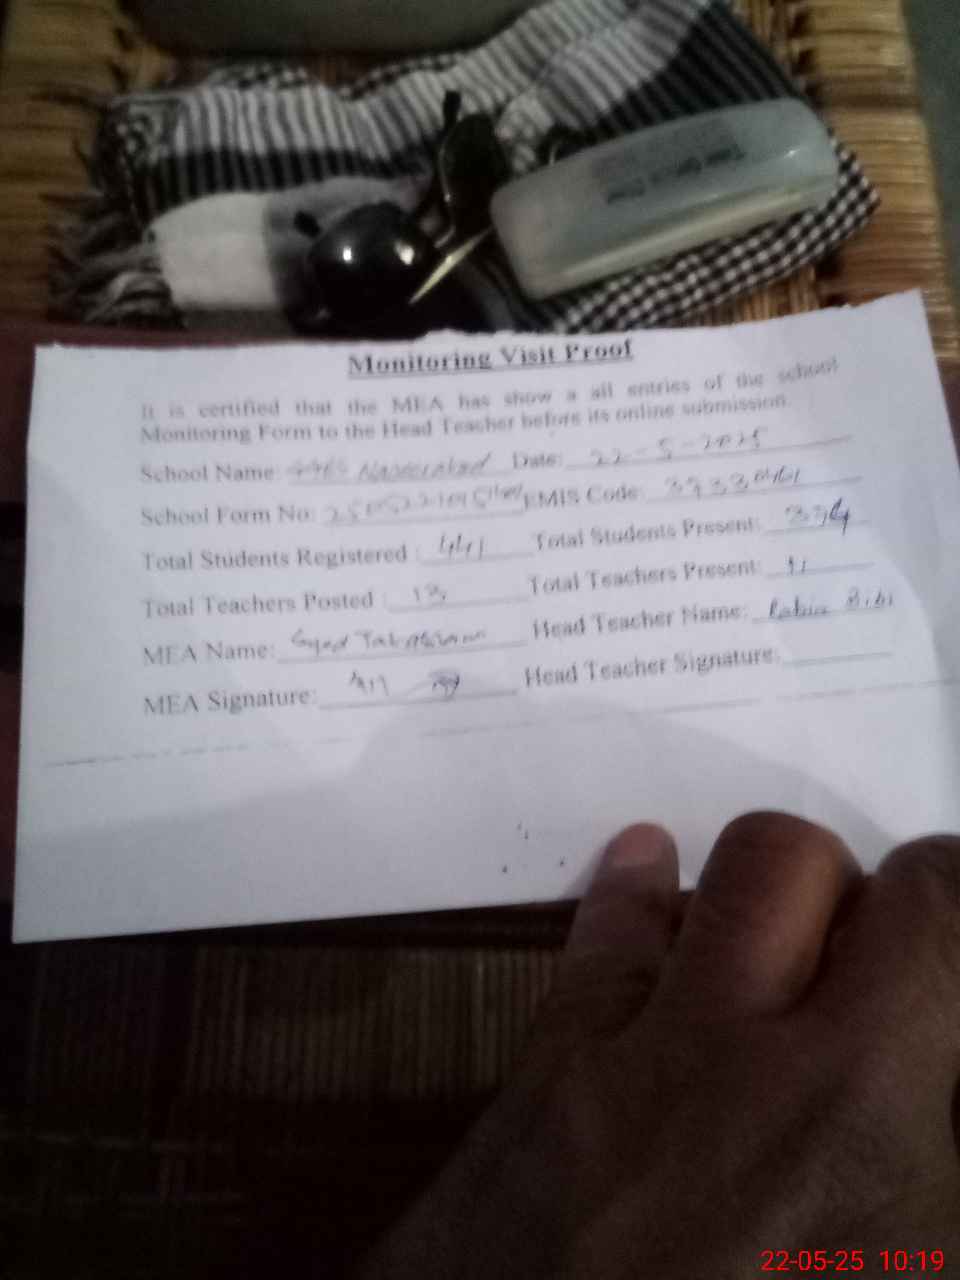 Monitoring Visit Proof
It is certified that the MEA has show a all entries of the school
Monitoring Form to the Head Teacher before its online submission.
School Name: Date: 22-5-2025
School Form No: EMIS Code:
Total Students Registered : 441 Total Students Present:
Total Teachers Posted : 13 Total Teachers Present: 11
MEA Name: Syed Head Teacher Name: Rabia Bibi
MEA Signature: Head Teacher Signature:
22-05-25 10:19